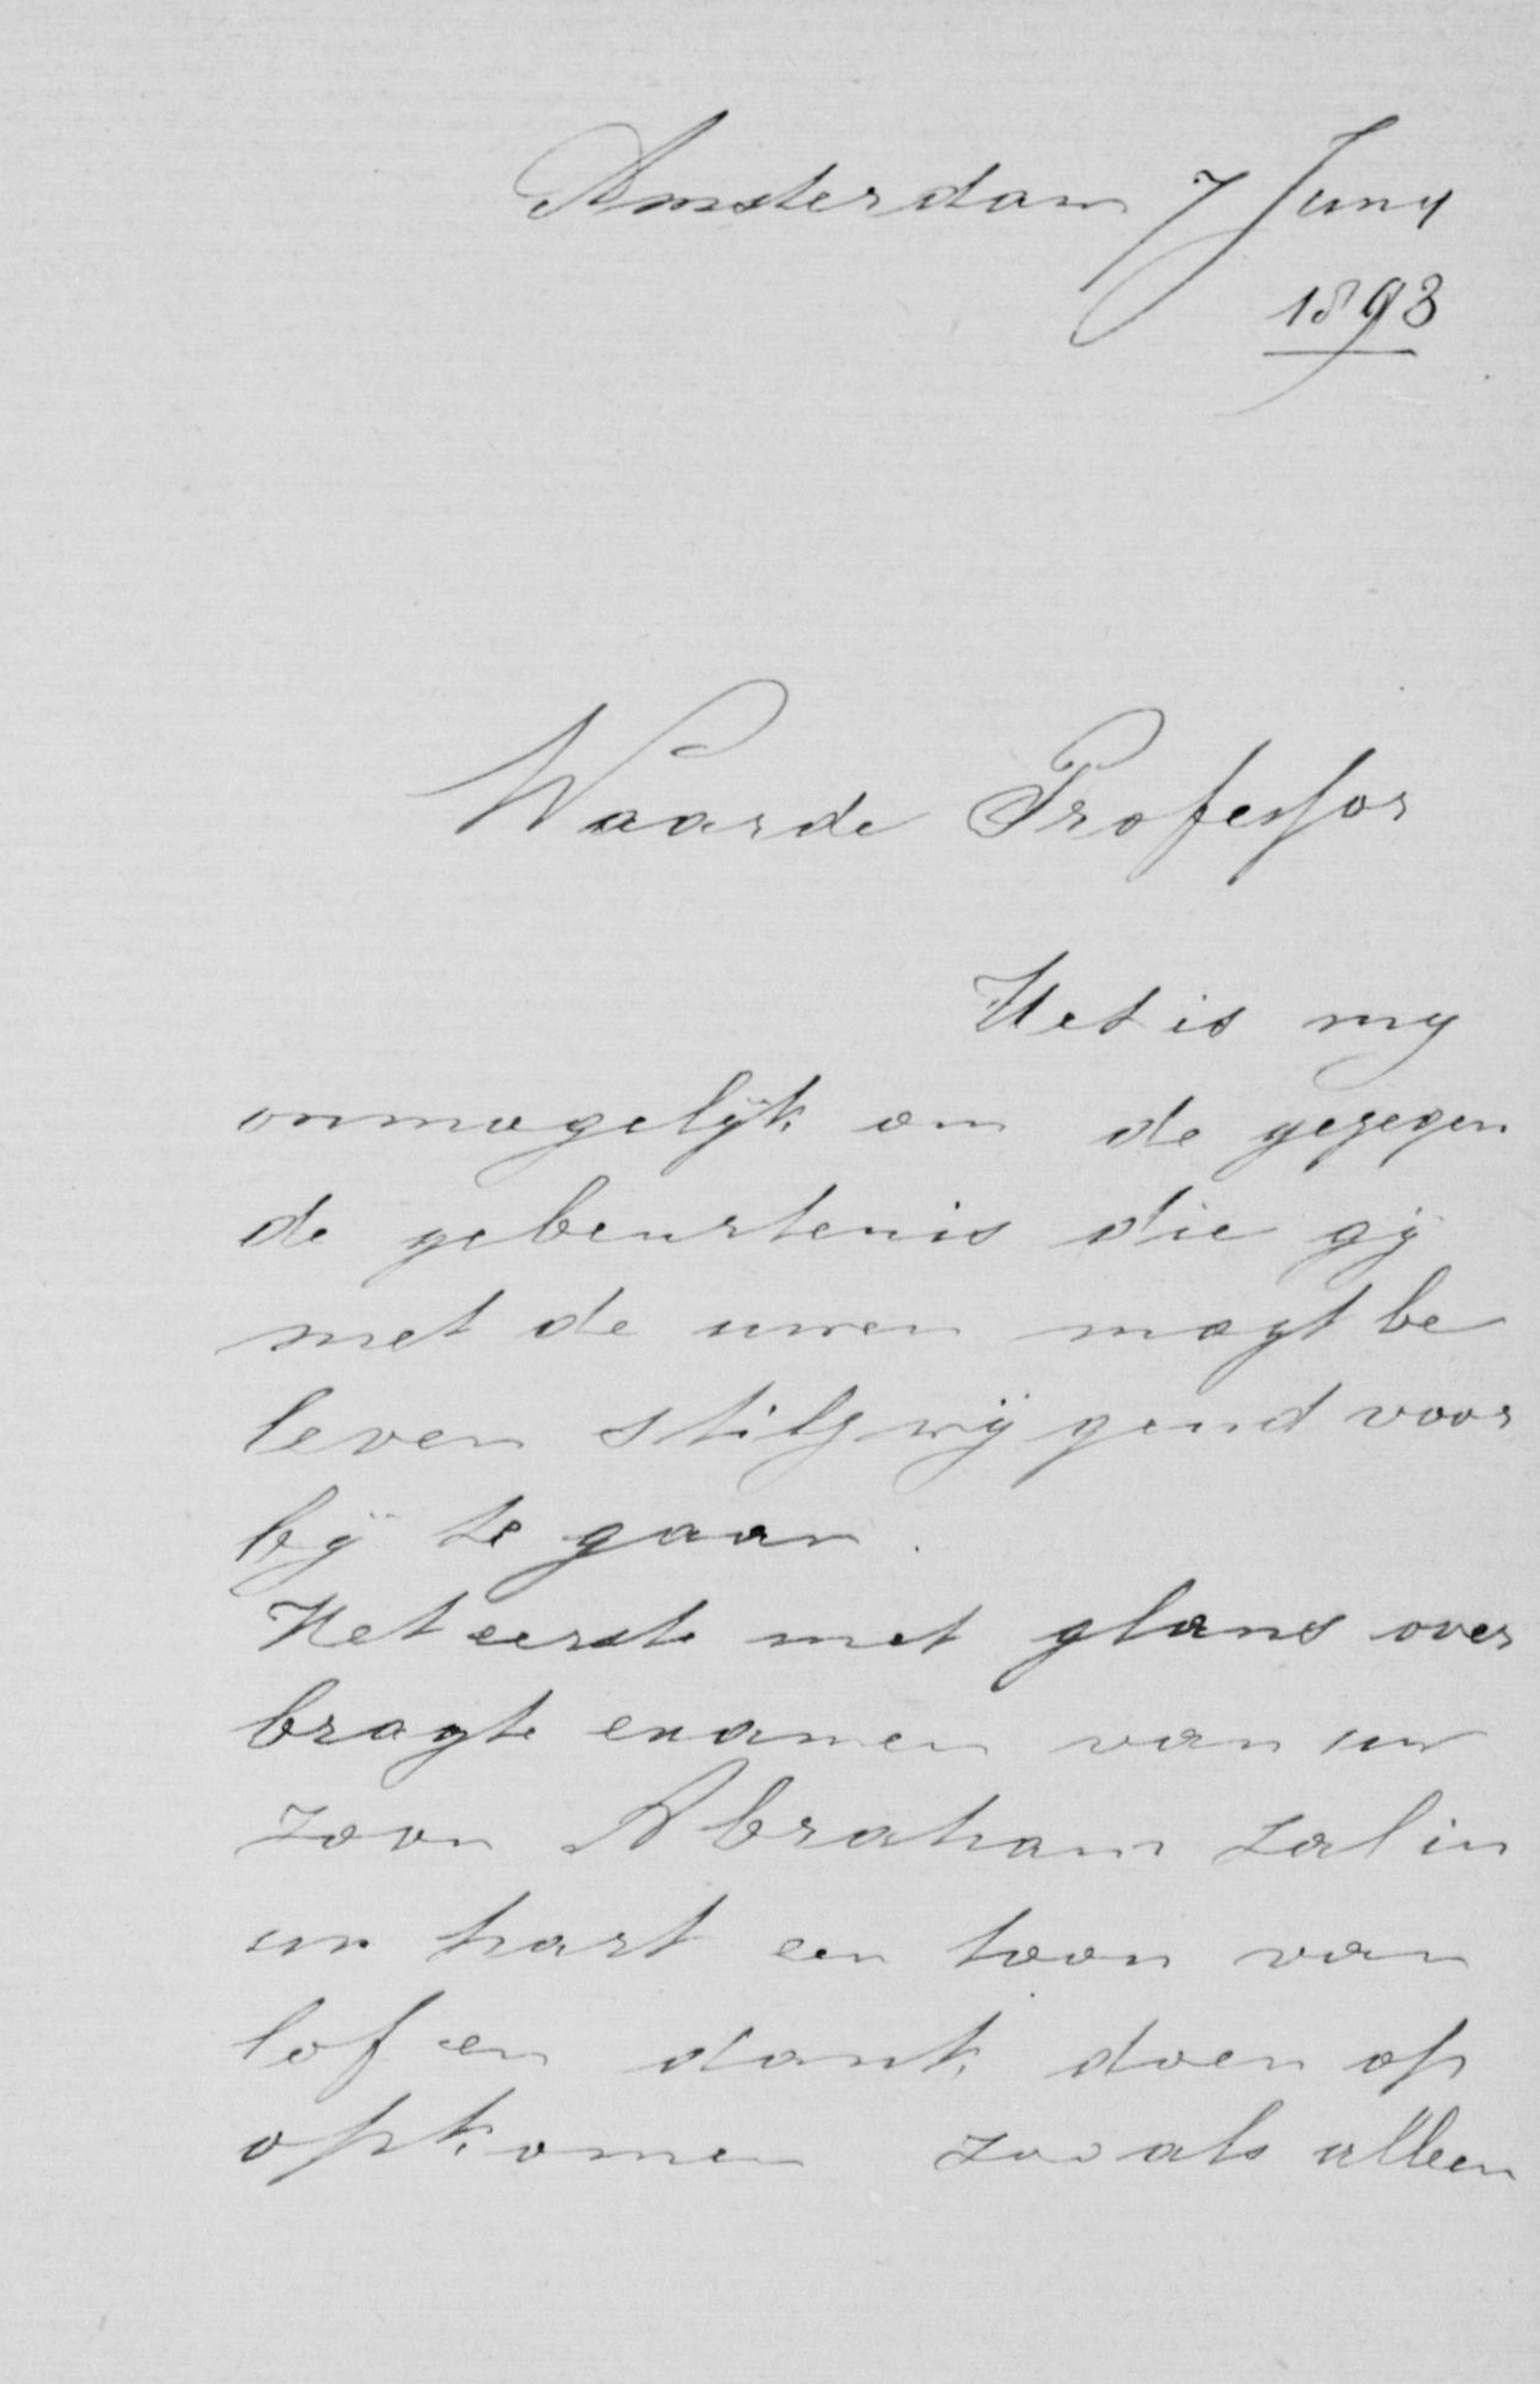 Amsterdam 7 Juny
1893
Waarde Professor
Het is my
onmogelijk om de gezegen
de gebeurtenis die gij
met de uwen mogt be
leven stilzwijgend voor
bij te gaan.
Het eerste met glans over
bragte examen van uw
zoon Abraham zal in
uw hart een toon van
lof en dank doen op
opkomen zooals alleen